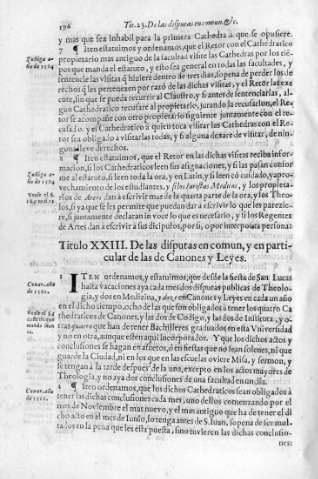 196 Tit. 23. De las disputas en comun, &c.
y mas que sea inhabil para la primera Cathedra à que se opusiere.
7 ¶ Iten estatuimos y ordenamos, que el Retor con el Cathedratico
propietario mas antiguo de la facultad visite las Cathedras por los tiē
pos que manda el estatuto, y esto sea general en todas las facultades, y
sentencie las visitas q̃ hiziere dentro de tres dias, so pena de perder los de
rechos q̃ les pertenecen por razō de las dichas visitas, y el Retor la exe
cute, sin que le pueda recurrir al Claustro, y si antes de sentenciarlas, al-
gun Cathedratico recusare al propietario, jurando la recusacion, el Re
tor se acompañe con otro propietario siguiente juntamente con el re-
cusado. y el Cathedratico à quien toca visitar las Cathedras con el Re
tor sea obligado à visitarlas todas, y si alguna dexare de visitar, de nin-
guna lleve derechos.
8 ¶ Iten estatuimos, que el Retor en las dichas visitas reciba infor-
macion, si los Cathedraticos leen sus asignaciones, y si las pasan confor
me al estatuto, si leen toda la ora, y en Latin, y si leen cō cuidado, y apro
vechamiento de los estudiantes, y si los Iuristas Medicos, y los propieta-
rios de Artes dan à escrivir mas de la quarta parte de la ora, y los Theo
los, y a que se les permite que puedan dar à escrivir lo que les parezie-
re, si juntamente declaran in voce lo que es necesario, y si los Regentes
de Artes dan à escrivir à sus dicipulos, por si, o por interposita persona
Titulo XXIII. De las disputas en comun, y en parti-
cular de las de Canones y Leyes.
1 ITEN ordenamos, y estatuimos, que desde la fiesta de San Lucas
hasta vacaciones aya cada mes dos disputas publicas de Theolo-
gia, y dos en Medicina, y dos en Canones y Leyes en cada un año
en el dicho tiempo, ocho de las quales son obligados à tener los quatro Ca
thedraticos de Canones, y las dos de Codigo, y las dos de Instituta, y o-
tras quatro que han de tener Bachilleres graduados en esta Universidad
y no en otra, aunque esten aqui incorporados. Y que los dichos actos y
conclusiones se hagan en asuetos, ò en fiestas que no sean solenes, ni que
guarde la Ciudad, ni en los que en las escuelas oviere Misa, y sermon, y
se tengan à la tarde despues de la una, excepto en los actos mayores de
Theologia, y no aya dos conclusiones de una facultad en un dia.
2 ¶ Iten ordenamos, que los dichos Cathedraticos sean obligados à
tener las dichas conclusiones cada mes, uno dellos començando por el
mes de Noviembre el mas nuevo, y el mas antiguo que ha de tener el di
cho acto en el mes de Iunio, lo tenga antes de S. Iuan, so pena de ser mul-
tados en la pena que les està puesta, sino tuvieren las dichas conclusio-
nes: